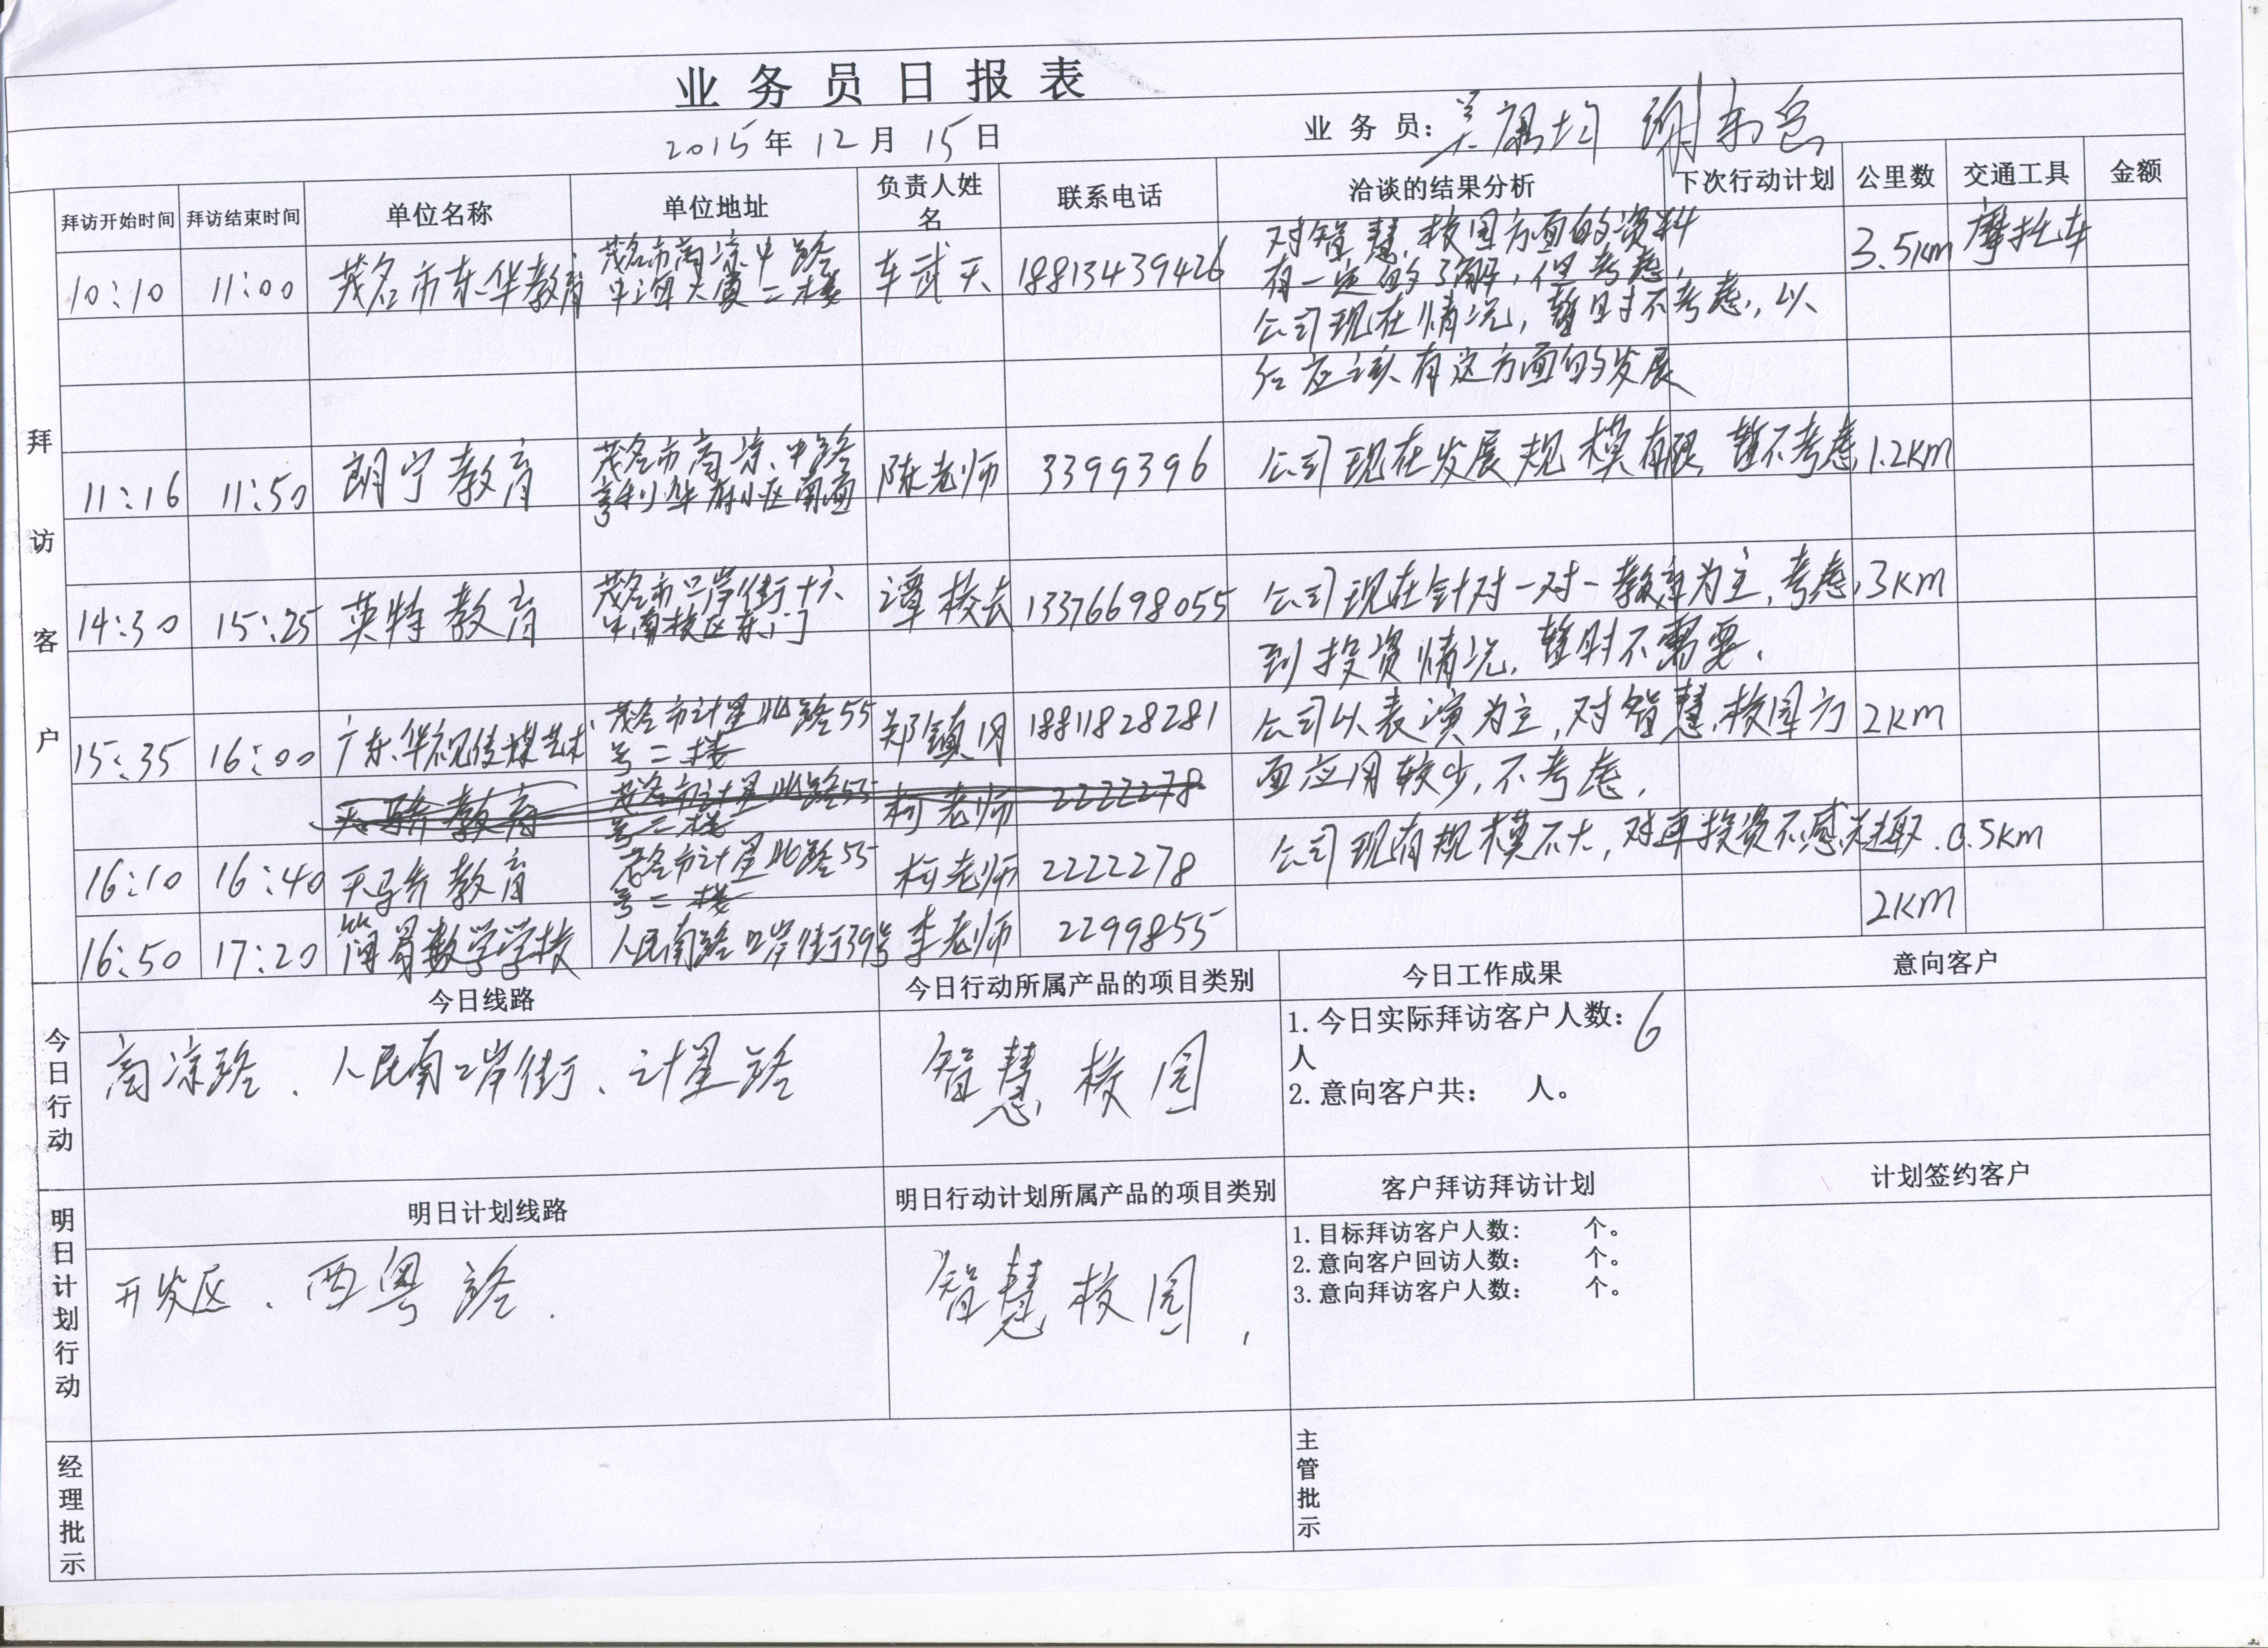 业务员日报表
2015年12月15日 业务员：
拜访开始时间 拜访结束时间 单位名称 单位地址 负责人姓名 联系电话 洽谈的结果分析 下次行动计划 公里数 交通工具 金额
拜访客户
10:10 11:00 茂名市东华教育 茂名市高凉中路 车武天 18813439426 对智慧校园方面的资料 3.5km 摩托车
中海大厦二楼 有一定的了解,但考虑
公司现在情况,暂时不考虑,以
后应该有这方面的发展
11:16 11:50 朗宁教育 茂名市高凉中路 陈老师 3399396 公司现在发展规模有限,暂不考虑 1.2km
亨利华府小区南面
14:30 15:25 英特教育 茂名市口岸街十六 谭校长 13376698055 公司现在针对一对一教育为主,考虑 3km
中南校区东门 到投资情况,暂时不需要.
15:35 16:00 广东华视传媒艺术 茂名市计星北路55 郑镇 18811828281 公司以表演为主,对智慧校园方 2km
号二楼 面应用较少,不考虑.
天骄教育 茂名市计星北路55 柯老师 2222278
号二楼
16:10 16:40 天骄教育 茂名市计星北路55 柯老师 2222278 公司现有规模不大,对再投资不感兴趣. 0.5km
号二楼
16:50 17:20 简易数学学校 人民南路口岸街39号 李老师 2299855 2km
今日行动
今日线路 今日行动所属产品的项目类别 今日工作成果 意向客户
高凉路、人民南口岸街、计星路 智慧校园 1.今日实际拜访客户人数：6
人
2.意向客户共： 人。
明日计划行动
明日计划线路 明日行动计划所属产品的项目类别 客户拜访拜访计划 计划签约客户
开发区、西粤路. 智慧校园,
1.目标拜访客户人数： 个。
2.意向客户回访人数： 个。
3.意向拜访客户人数： 个。
经理批示 主管批示